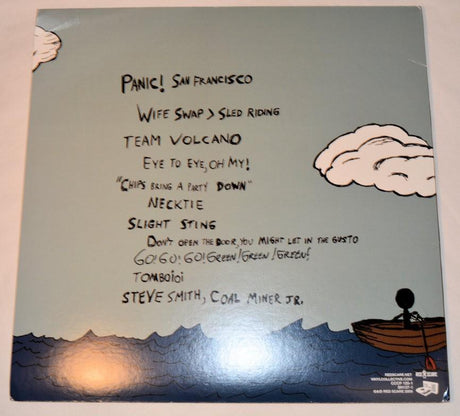 PANIC! SAN FRANCISCO
WIFE SWAP > SLED RIDING
TEAM VOLCANO
EYE TO EYE, OH MY!
"CHIPS BRING A PARTY DOWN"
NECKTIE
SLIGHT STING
DON'T OPEN THE DOOR, YOU MIGHT LET IN THE GUSTO
GO! GO! GO! GREEN! GREEN! GREEN!
TOMBOIOI
STEVE SMITH, COAL MINER JR.
REDSCARE.NET
VINYLCOLLECTIVE.COM
RED SCARE